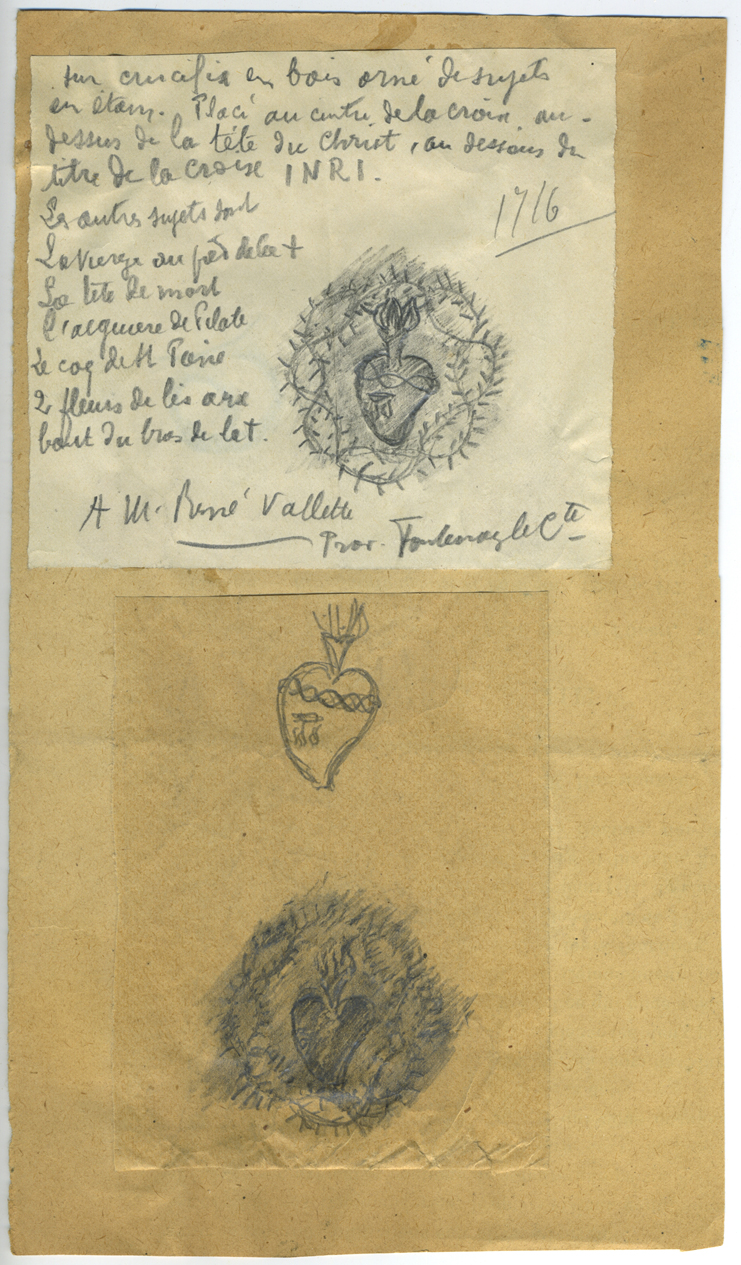 sur crucifix en bois orné de sujets
en étain. Placé au centre de la croix, au-
dessus de la tête du Christ, au dessous du
titre de la croise INRI.
1716
Les autres sujets sont
La Vierge au pied de la +
La tête de mort
l'acquiere de Pilate
Le coq de St Pierre
2 fleurs de lis aux
bout du bras de la t.
A Mr René Vallette
Prov. Fontenay le Cte